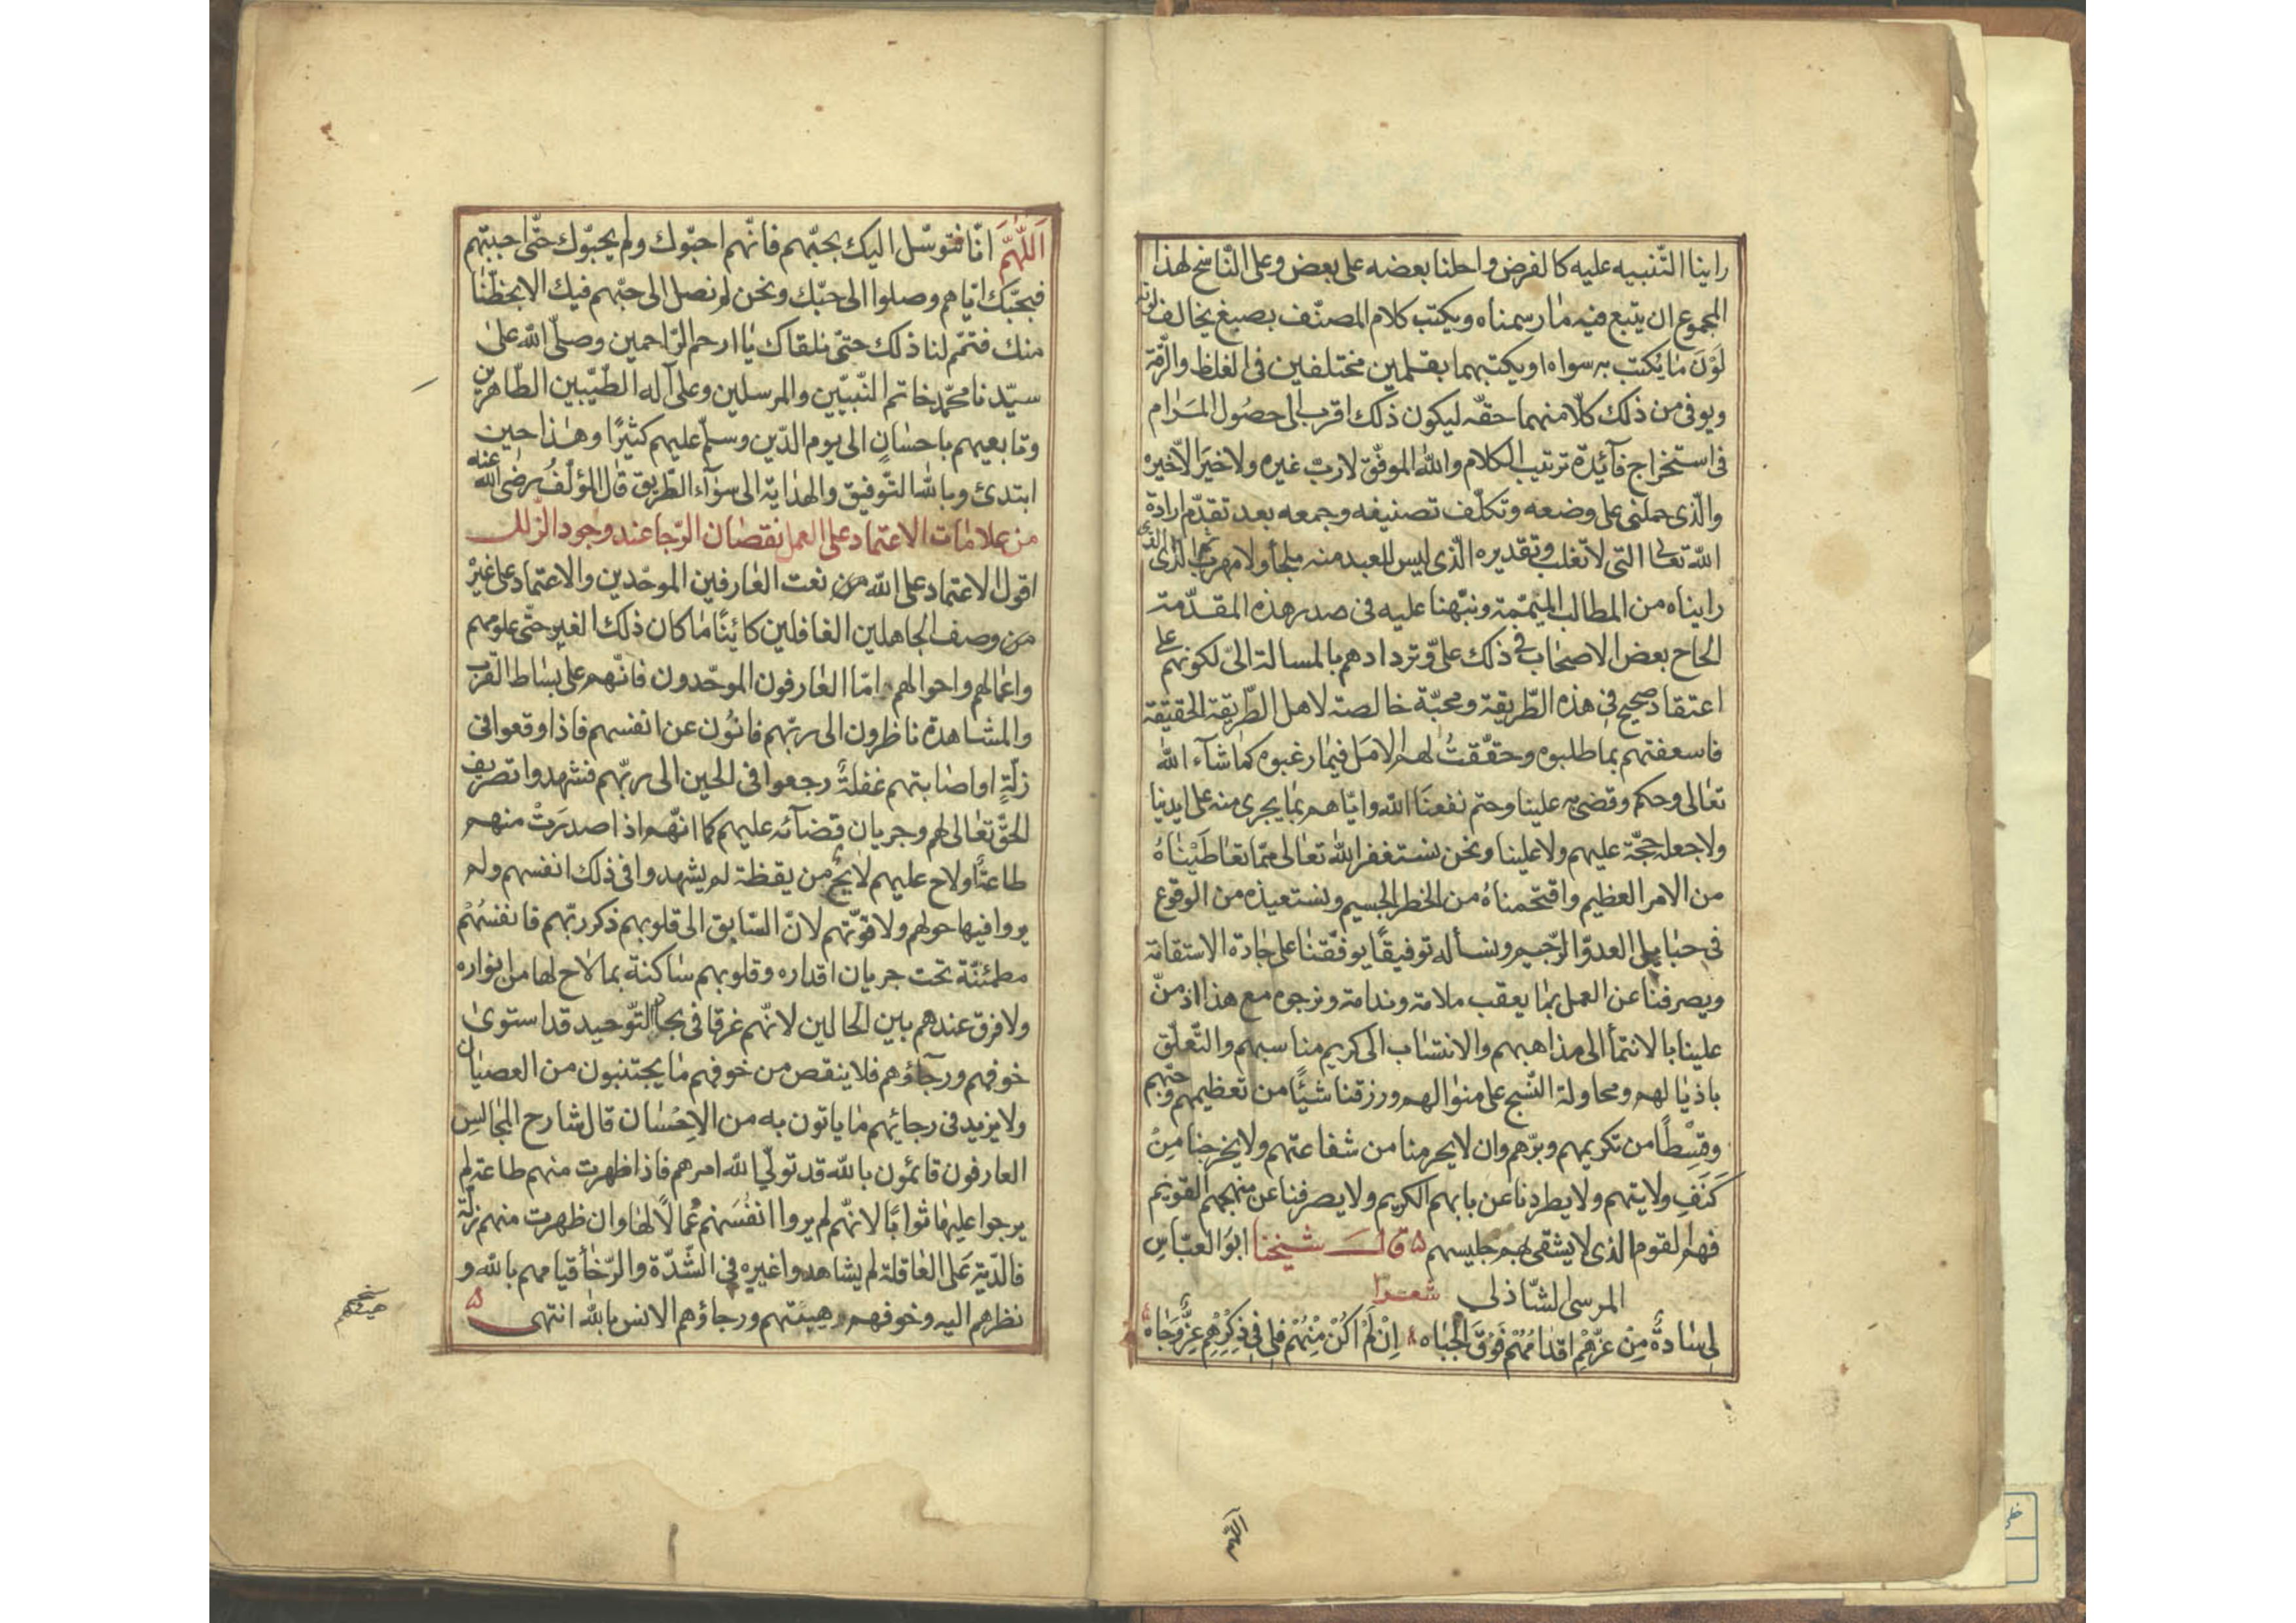 راينا التّنبيه عليه كالفرض واحلنا بعضه على بعض وعلى النّاسخ لهذا
المجموع ان يتبع فيه ما رسمناه ويكتب كلام المصنّف بصبغ يخالف لونه
لَوْنَ ما يُكتب به سواه او يكتبهما بقلمين مختلفين في الغلظ والرّقة
ويوفى من ذلك كلّا منهما حقّه ليكون ذلك اقرب الى حصُول المَرام
فى استخراج فآئدة ترتيب الكلام والله الموفّق لا ربّ غيره ولا خيرَ الّا خيره
والّذى حملنى على وضعه وتكلّف تصنيفه وجمعه بعد تقدّم ارادة
الله تعالى التى لا تغلب وتقديره الّذى ليس للعبد منه ملجأ ولا مهرب الذى
رايناه من المطالب المتمّمة ونبّهنا عليه فى صدر هذه المقدّمة
الحاح بعض الاصحاب فى ذلك علىّ وتردادهم بالمسالة الىّ لكونهم على
اعتقاد صحيح فى هذه الطّريقة ومحبّة خالصة لاهل الطّريقة الحقيقة
فاسعفتهم بما طلبوه وحققتُ لهم الامل فيما رغبوه كما شآء الله
تعالى وحكم وقضى به علينا وحتم نفعنا الله وايّاهم بما يجرى منه على ايدينا
ولا جعله حجّة عليهم ولا علينا ونحن نستغفر الله تعالى ممّا تعاطَيْناهُ
من الامر العظيم واقتحمناهُ من الخطر الجسيم ونستعيذه من الوقوع
فى حبايل العدوّ الرّجيم ونسأله توفيقًا يوفّقنا على جادّة الاستقامة
ويصرفنا عن العمل بما يعقب ملامة وندامة ونرجوه مع هذا اذ منّ
علينا بالانتمآ الى مذاهبهم والانتساب الى كريم مناسبهم والتّعلّق
باذيالهم ومحاولة النّسج على منوالهم ورزقنا شيئًا من تعظيمهم وحبّهم
وقِسْطًا من تكريمهم وبرّهم وان لا يحرمنا من شفاعتهم ولا يخرجنا مِنْ
كَنَفِ ولايتهم ولا يطردنا عن بابهم الكريم ولا يصرفنا عن منهجهم القويم
فهم القوم الذى لا يشقى بهم جليسهم ۵ قال شيخنا ابو العبّاس
المرسى الشّاذلى شعرا
لى سَادةٌ مِنْ عزّهِمْ اقدامُهُمْ فَوْقَ الجِبَاه ۸ اِنْ لَمْ اَكُنْ مِنْهُمْ فلى فى ذِكْرِهِمْ عِزٌّ وَجَاه
اَللّهُمَّ انّا نتوسّل اليك بحبّهم فانّهم احبّوك ولم يحبّوك حتّى احببتهم
فبحبّك ايّاهم وصلوا الى حبّك ونحن لم نصل الى حبّهم فيك الا بحظّنا
منك فتمّم لنا ذلك حتىّ نلقاك يا ارحم الرّاحمين وصلّى الله على
سيّدنا محمّد خاتم النّبيّين والمرسلين وعلى آله الطّيّبين الطّاهرين
وتابعيهم باحسانٍ الى يوم الدّين وسلّم عليهم كثيرًا وهذا حين
ابتدئ وبالله التّوفيق والهداية الى سوآء الطّريق قال المؤلّفُ رضى الله عنه
من علامات الاعتماد على العمل نقصان الرّجا عند وجود الزلل
اقول الاعتماد على الله من نعت العارفين الموحّدين والاعتماد على غيرْ
من وصف الجاهلين الغافلين كائنًا ما كان ذلك الغير حتّى علومهم
واعمالهم واحوالهم امّا العارفون الموحّدون فانّهم على بساط القرب
والمشاهدة ناظرون الى ربّهم فانون عن انفسهم فاذا وقعوا فى
زلّةٍ او اصابتهم غفلةٌ رجعوا فى الحين الى ربّهم فشهدوا تصريف
الحقّ تعالى لهم وجريان قضآئه عليهم كما انّهم اذا صدرَتْ منهم
طاعة او لاح عليهم لايحٌ من يقظة لم يشهدوا فى ذلك انفسهم ولم
يروا فيها حولهم ولا قوّتهم لانّ السّابق الى قلوبهم ذكر ربّهم فانفسُهُمْ
مطمئنّة تحت جريان اقداره وقلوبهم ساكنة بما لاح لها من انواره
ولا فرق عندهم بين الحالين لانّهم غرقا فى بحار التّوحيد قد استوى
خوفهم ورجآؤهم فلا ينقص من خوفهم ما يجتنبون من العصيان
ولا يزيد فى رجائهم ما ياتون به من الاِحْسان قال شارح المجالس
العارفون قائمون بالله قد تولّى الله امرهم فاذا ظهرت منهم طاعة لم
يرجوا عليها ثوابًا لانّهم لم يروا انفُسَهم عُمالًا لها وان ظهرت منهم زلّة
فالدّية عَلى العاقلة لم يشاهدوا غيره فى الشّدّة والرّخآ قيامهم بالله و
نظرهم اليه وخوفهم هيبتهم ورجاؤهم الانس بالله انتهى ۵